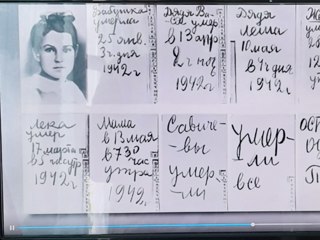 Бабушка
умерла
25 янв.
3ч. дня
1942г
Дядя Ва-
ся умер
в 13 апр
2ч ноч
1942г
Дядя
Леша
10 мая
в 4ч дня
1942г
Лека
умер
17 марта
в 5 час утр
1942г
Мама
в 13 мая
в 7 30
час
утра
1942г
Савиче-
вы
умер-
ли
умер-
ли
все